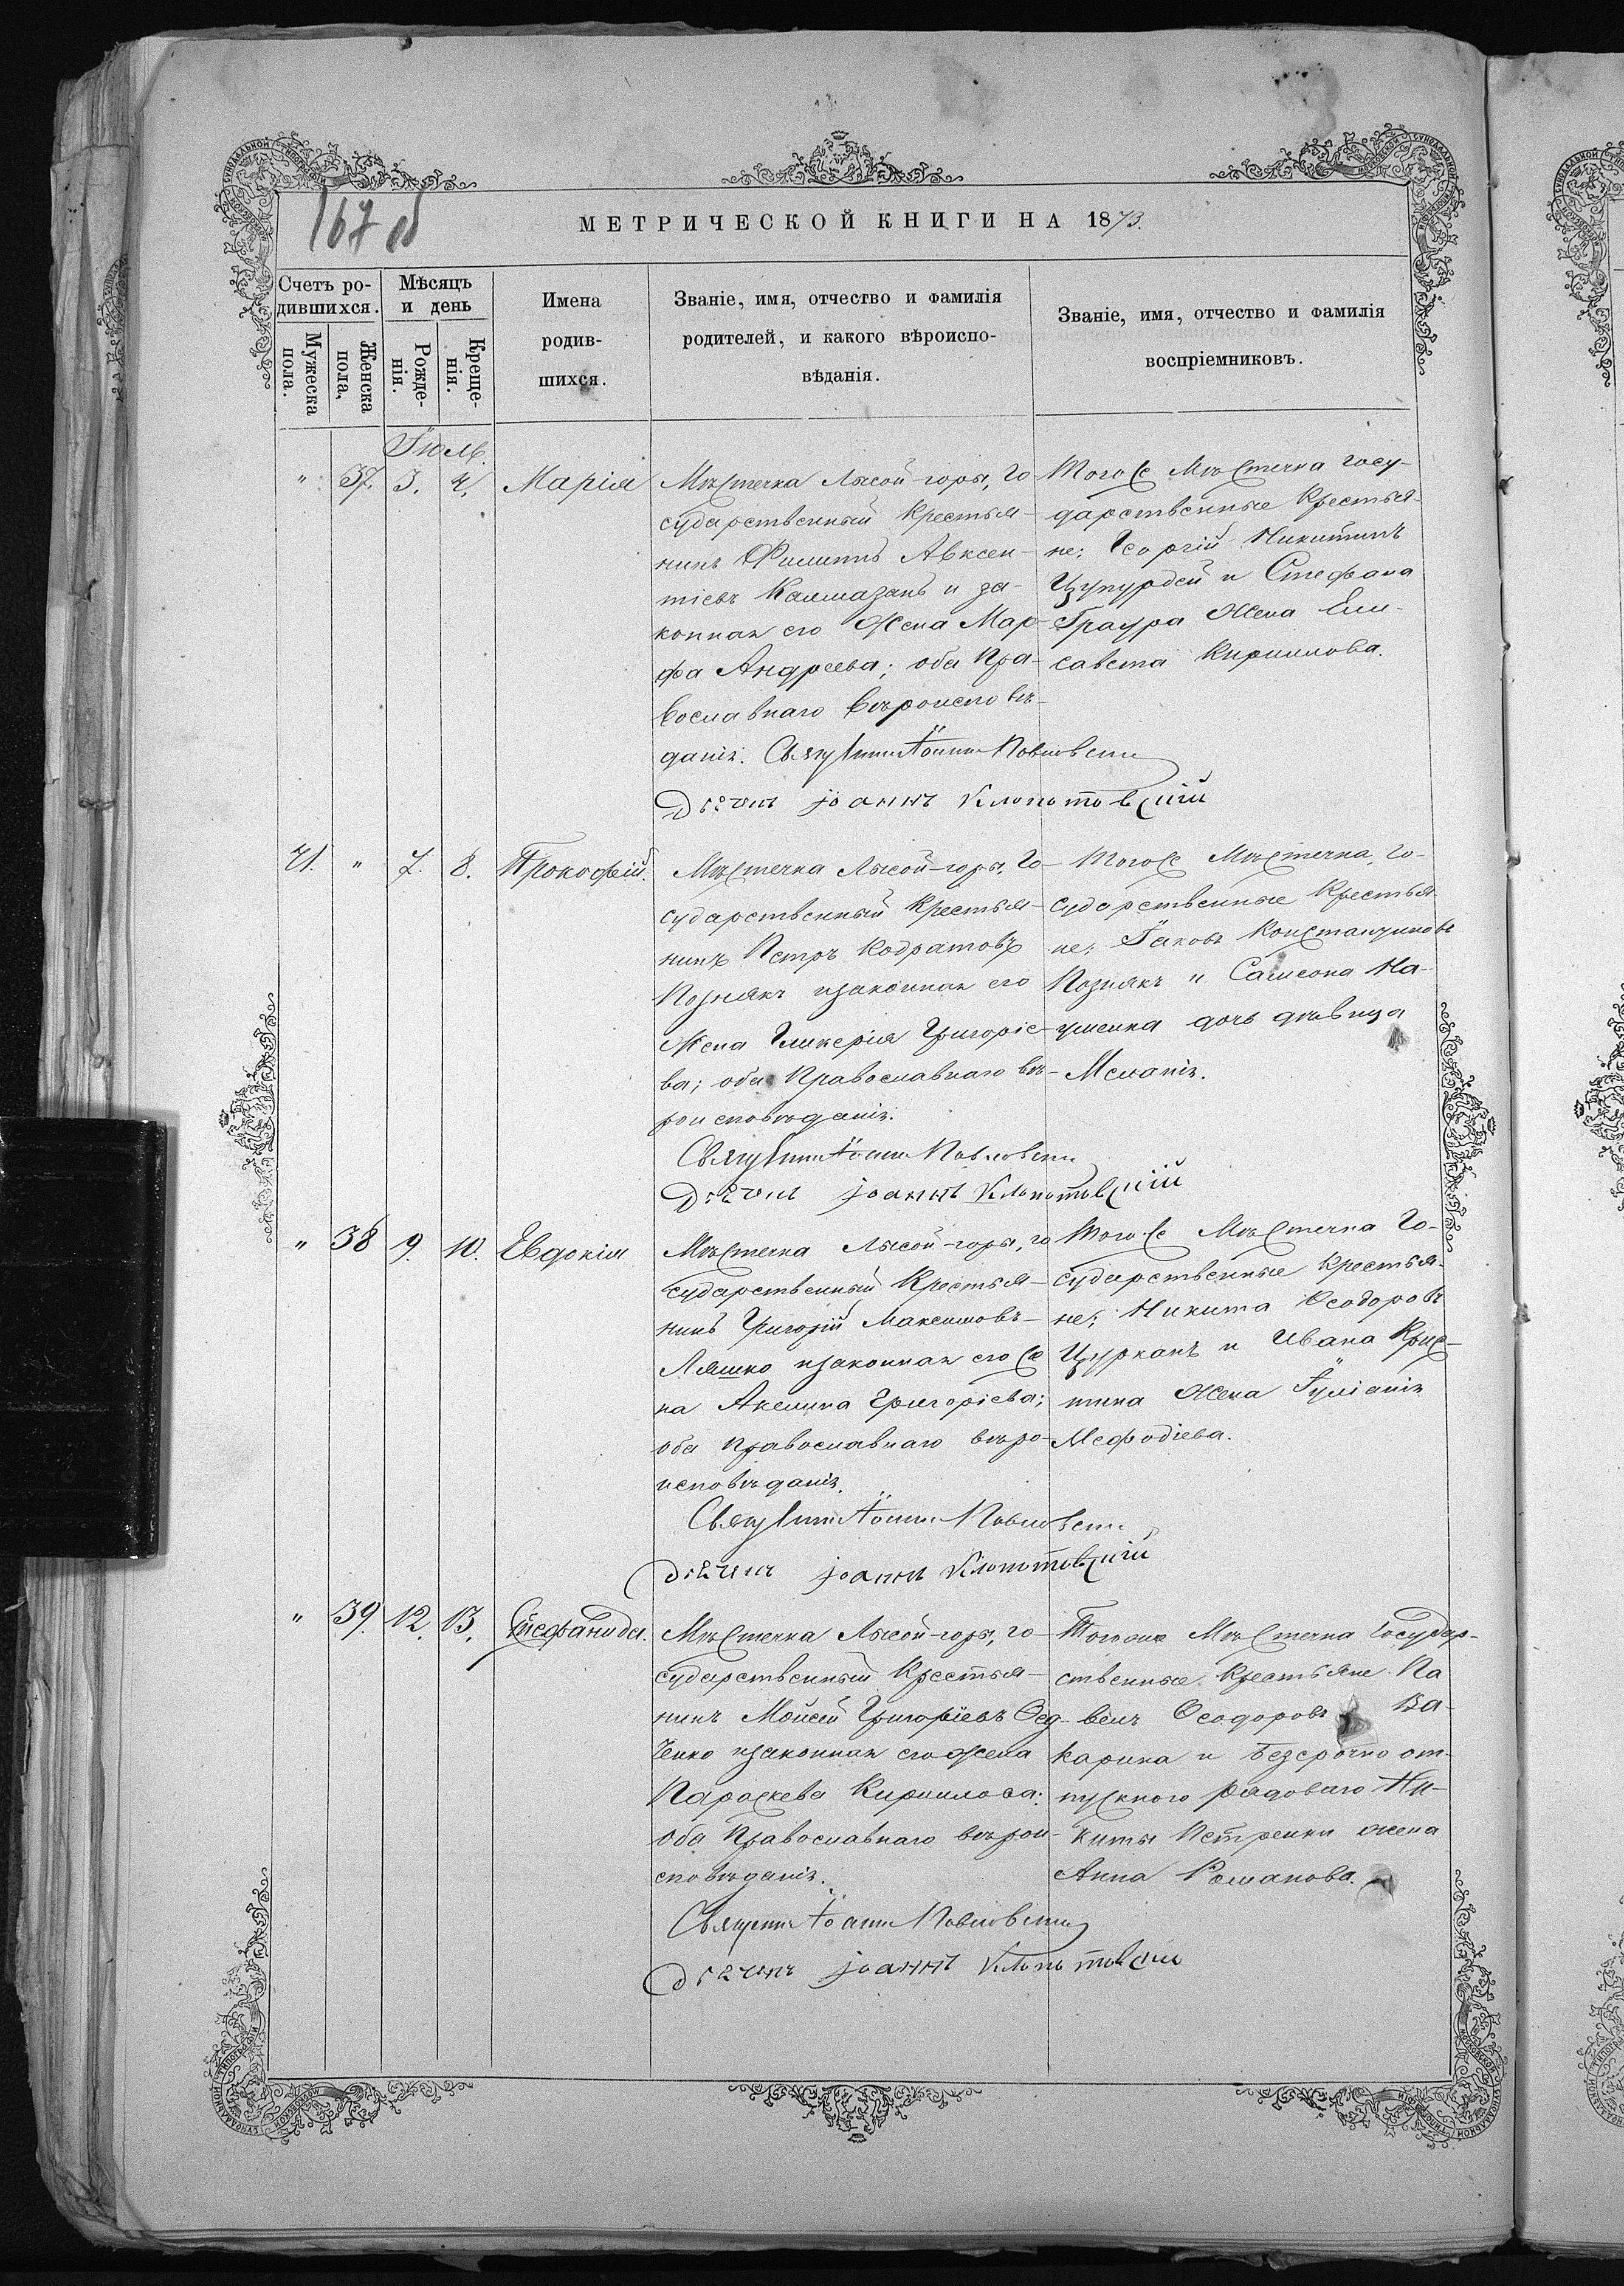 167 об
МЕТРИЧЕСКОЙ КНИГИ НА 1873.
Счетъ ро-
дившихся.
Мужеска
пола.
Женска
пола,
Мѣсяцъ
и день
Рожде-
нія.
Креще-
нія.
Имена
родив-
шихся.
Званіе, имя, отчество и фамилія
родителей, и какого вѣроиспо-
вѣданія.
Званіе, имя, отчество и фамилія
воспріемниковъ.
Іюль.
" 37. 3. 4. Марія
Мѣстечка Лысой-горы, го
сударственный крестья-
нинъ Филиппъ Авксен-
тіевъ Калмазанъ и за-
конная его жена Мар-
фа Андреева; оба Пра-
вославнаго вѣроисповѣ-
данія.
Дьячокъ Іоаннъ Клопотовскій
Тогоже Мѣстечка госу-
дарственные Крестья-
не: Георгій Никитинъ
Цупурдей и Стефана
Граура Жена Ели-
савета Кириллова.
41. " 7. 8. Прокофій.
Мѣстечка Лысой-горы, Го-
сударственный Крестья-
нинъ Петръ Кодратовъ
Познякъ изаконная его
Жена Гликерія Григоріе-
ва; оба Православнаго вѣ-
роисповѣданія.
Дьячокъ Іоаннъ Клопотовскій
Тогоже Мѣстечка, го-
сударственные Крестья-
не; Іаковъ Константиновъ
Познякъ и Самсона На-
уменка дочь дѣвица
Меланія.
" 38 9. 10. Евдокія
Мѣстечка Лысой-горы, го
сударственный Крестья-
нинъ Григорій Максимовъ
Ляшко изаконная его же
на Акелина Григоріева;
оба православнаго вѣро-
исповѣданія.
Дьячокъ Іоаннъ Клопотовскій
Тогоже Мѣстечка Го-
сударственные крестья-
не; Никита Ѳеодоровъ
Цурканъ и Ивана Крис-
тина Жена Іуліанія
Мефодіева.
" 39. 12. 13. Стефанида.
Мѣстечка Лысой-горы, го-
сударственный Крестья-
нинъ Мойсей Григоріевъ Ѳед-
ченко изаконная его жена
Параскева Кириллова:
оба Православнаго вѣрои-
сповѣданія.
Дьячокъ Іоаннъ Клопотовскій
Тогоже Мѣстечка Государ-
ственные Крестьяне Па
велъ Ѳеодоровъ Ва-
карина и Безсрочно от-
пускного рядоваго Ни-
киты Петренки жена
Анна Романова.